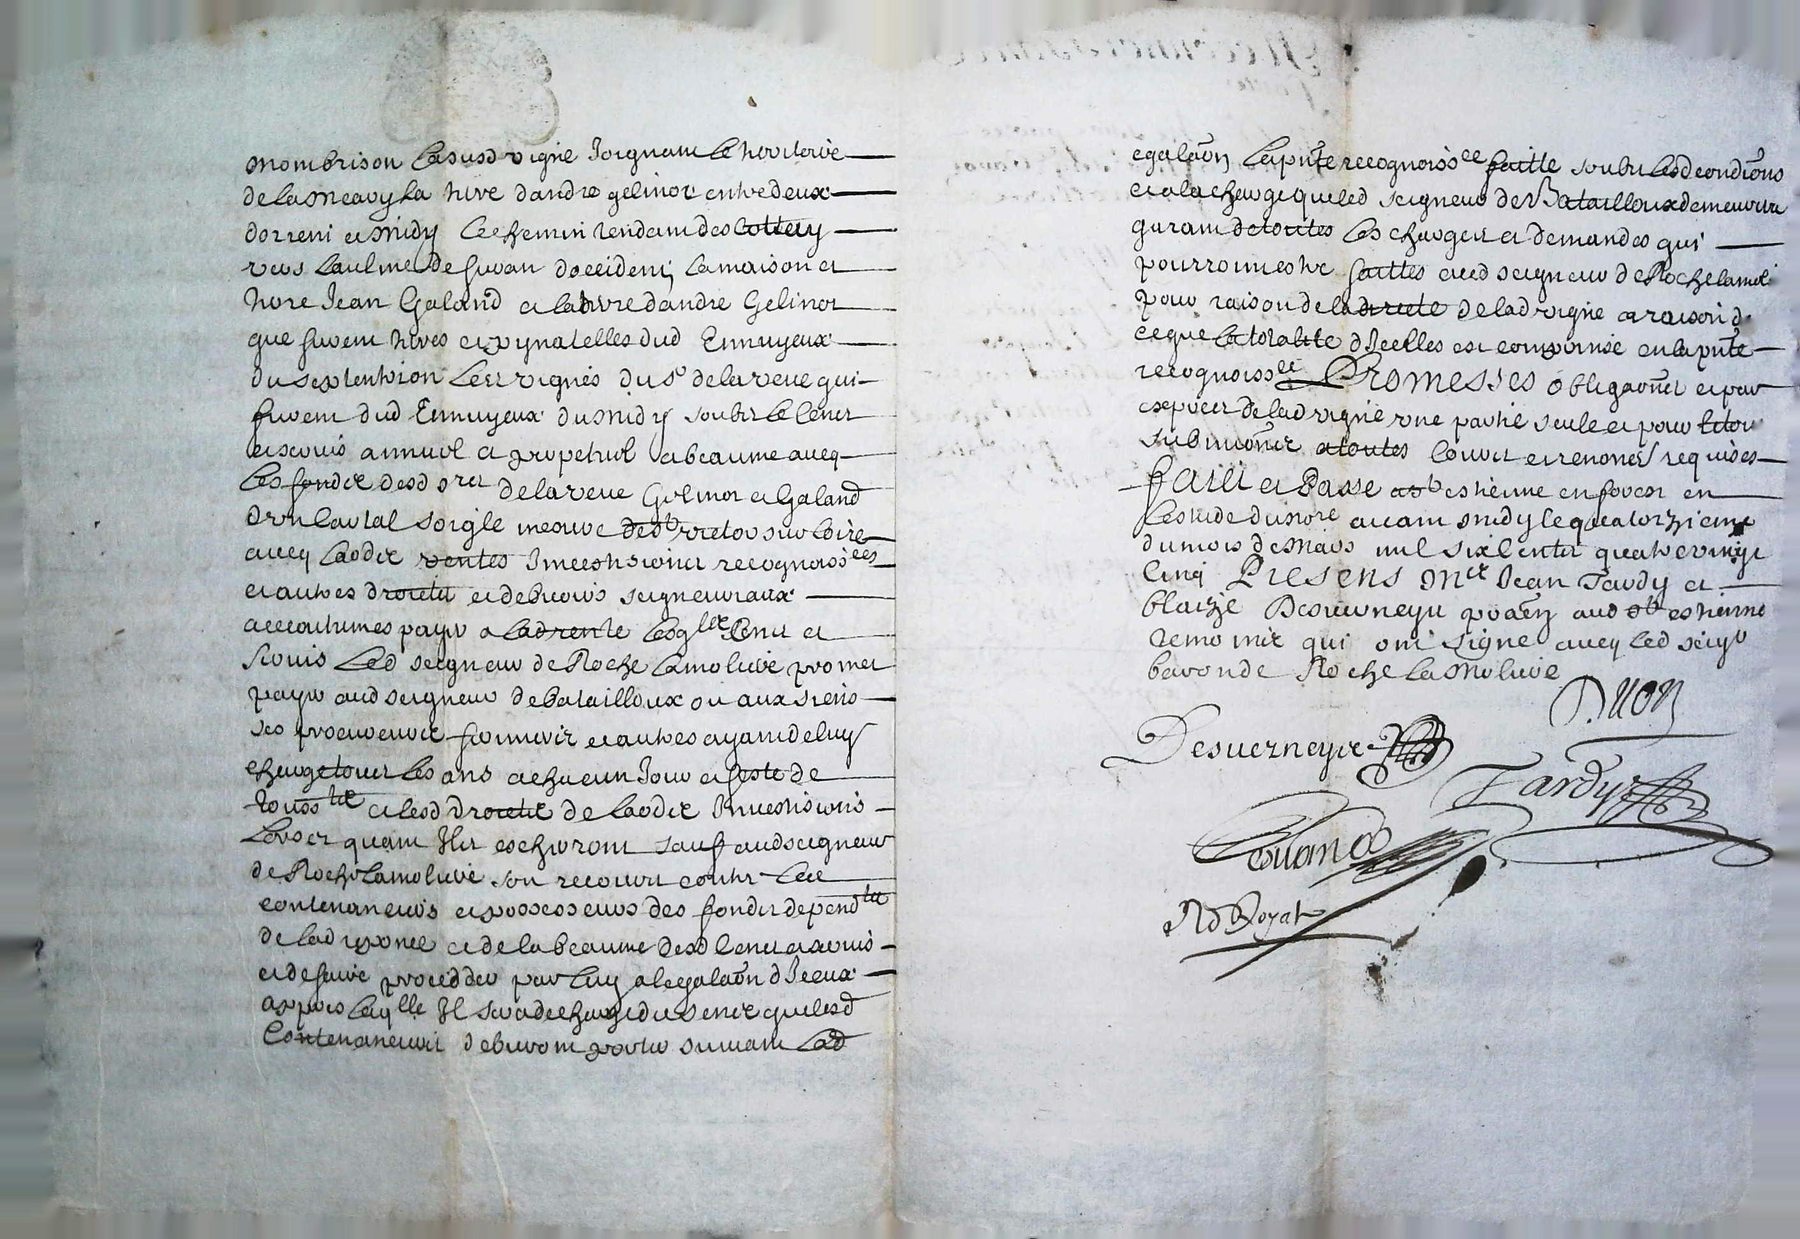 Mombrison lasusd vigne Joignant le territoire
de la Meary la terre dandre gelinot entre deux
dorient et midy le chemin tendant des
vers laulme de furan doccident la maison et
terre Jean Galand et la terre dandre Gelinot
que furent terres et pynatelles dud Ennuyeux
du septentrion les vignes du sr de la veue qui
furent dud Ennuyeux du midy soubz le cens
et servis annuel et perpetuel a beaume avecq
les fondz desd srs de la veue Gelinot et Galand
dun cartal soigle mesure de st victor sur loire
avecq laodz ventes Investisons recognoissces
et autres droictz et debvoirs seigneuriaux
accoutumes payer a ladrente lesqlz cens et
servis led seigneur de Roche lamoliere promet
payer aud seigneur de batailloux ou aux siens
ses procureurs fermiers et autres ayant de luy
charge tous les ans a chacun Jour et feste de
touss tz et lesd droictz de laodz Investisons
lorsq quant Ilz escherront sauf aud seigneur
de Roche lamoliere son recours contre les
contenancuers et possesseurs des fondz dependtz
de lad et de la beaume desd cens et servis
et de faire procedder par luy a legalaon d Iceux
appres laqlle Il sera descharge du sencz que lesd
Contenancuers debvront porter suivant lad
egalaon lapnte recognoissce faitte soubz lesd condions
et a la charge que led seigneur des Batailloux demeurera
garant de toutes les charges et demandes qui
pourront estre faittes aud seigneur de Roche lamoli
pour raison de la directe de lad vigne a raison d
ce que la totalite d Icelles est comprinse en lapnte
recognoissce Promesses obligaons et par
expres de lad vigne une partie seule et pour le tou
submions a toutes cours et renons requises
Faict et Passe a st estienne en forest en
lestude du nore avant midy le quatorzieme
du mois de Mars mil six centz quatre vingt
cinq Presens Mre Jean Tardy et
blaize Desverneys praen aud st estienne
temoins qui ont signe avecq led seigr
baron de Roche la Moliere
Desverneyse
Tardy